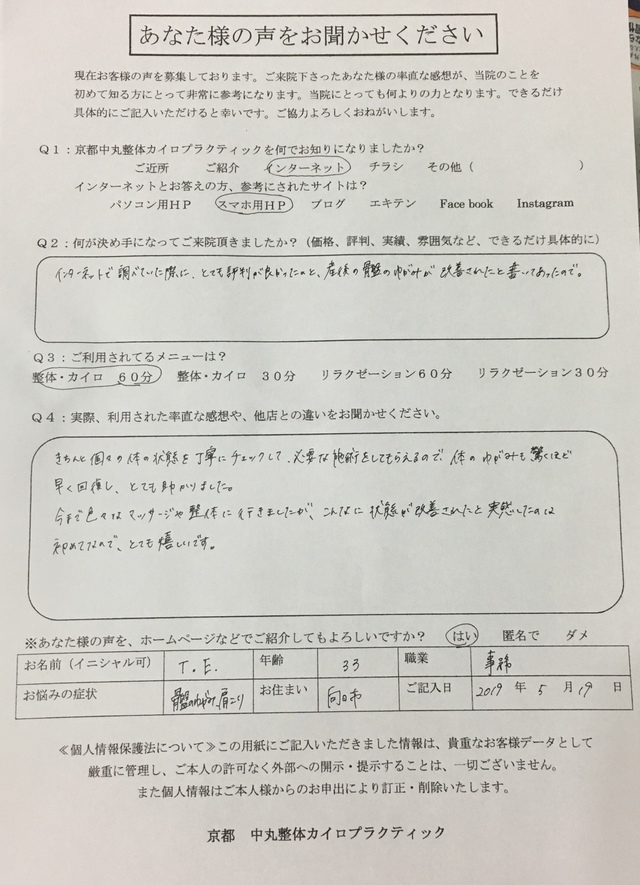 あなた様の声をお聞かせください
現在お客様の声を募集しております。ご来院下さったあなた様の率直な感想が、当院のことを
初めて知る方にとって非常に参考になります。当院にとっても何よりの力となります。できるだけ
具体的にご記入いただけると幸いです。ご協力よろしくおねがいします。
Q1：京都中丸整体カイロプラクティックを何でお知りになりましたか？
ご近所　ご紹介　インターネット　チラシ　その他（　　　　）
インターネットとお答えの方、参考にされたサイトは？
パソコン用HP　スマホ用HP　ブログ　エキテン　Face book　Instagram
Q2：何が決め手になってご来院頂きましたか？（価格、評判、実績、雰囲気など、できるだけ具体的に）
インターネットで調べていた際に、とても評判が良かったのと、産後の骨盤のゆがみが改善されたと書いてあったので。
Q3：ご利用されてるメニューは？
整体・カイロ　60分　整体・カイロ　30分　リラクゼーション60分　リラクゼーション30分
Q4：実際、利用された率直な感想や、他店との違いをお聞かせください。
きちんと個々の体の状態を丁寧にチェックして、必要な施術をしてもらえるので、体のゆがみも驚くほど
早く回復し、とても助かりました。
今まで色々なマッサージや整体に行きましたが、こんなに状態が改善されたと実感したのは
初めてなので、とても嬉しいです。
※あなた様の声を、ホームページなどでご紹介してもよろしいですか？　はい　匿名で　ダメ
お名前（イニシャル可）　T.E.　年齢　33　職業　事務
お悩みの症状　骨盤のゆがみ、肩こり　お住まい　向日市　ご記入日　2019年5月19日
≪個人情報保護法について≫この用紙にご記入いただきました情報は、貴重なお客様データとして
厳重に管理し、ご本人の許可なく外部への開示・提示することは、一切ございません。
また個人情報はご本人様からのお申出により訂正・削除いたします。
京都　中丸整体カイロプラクティック